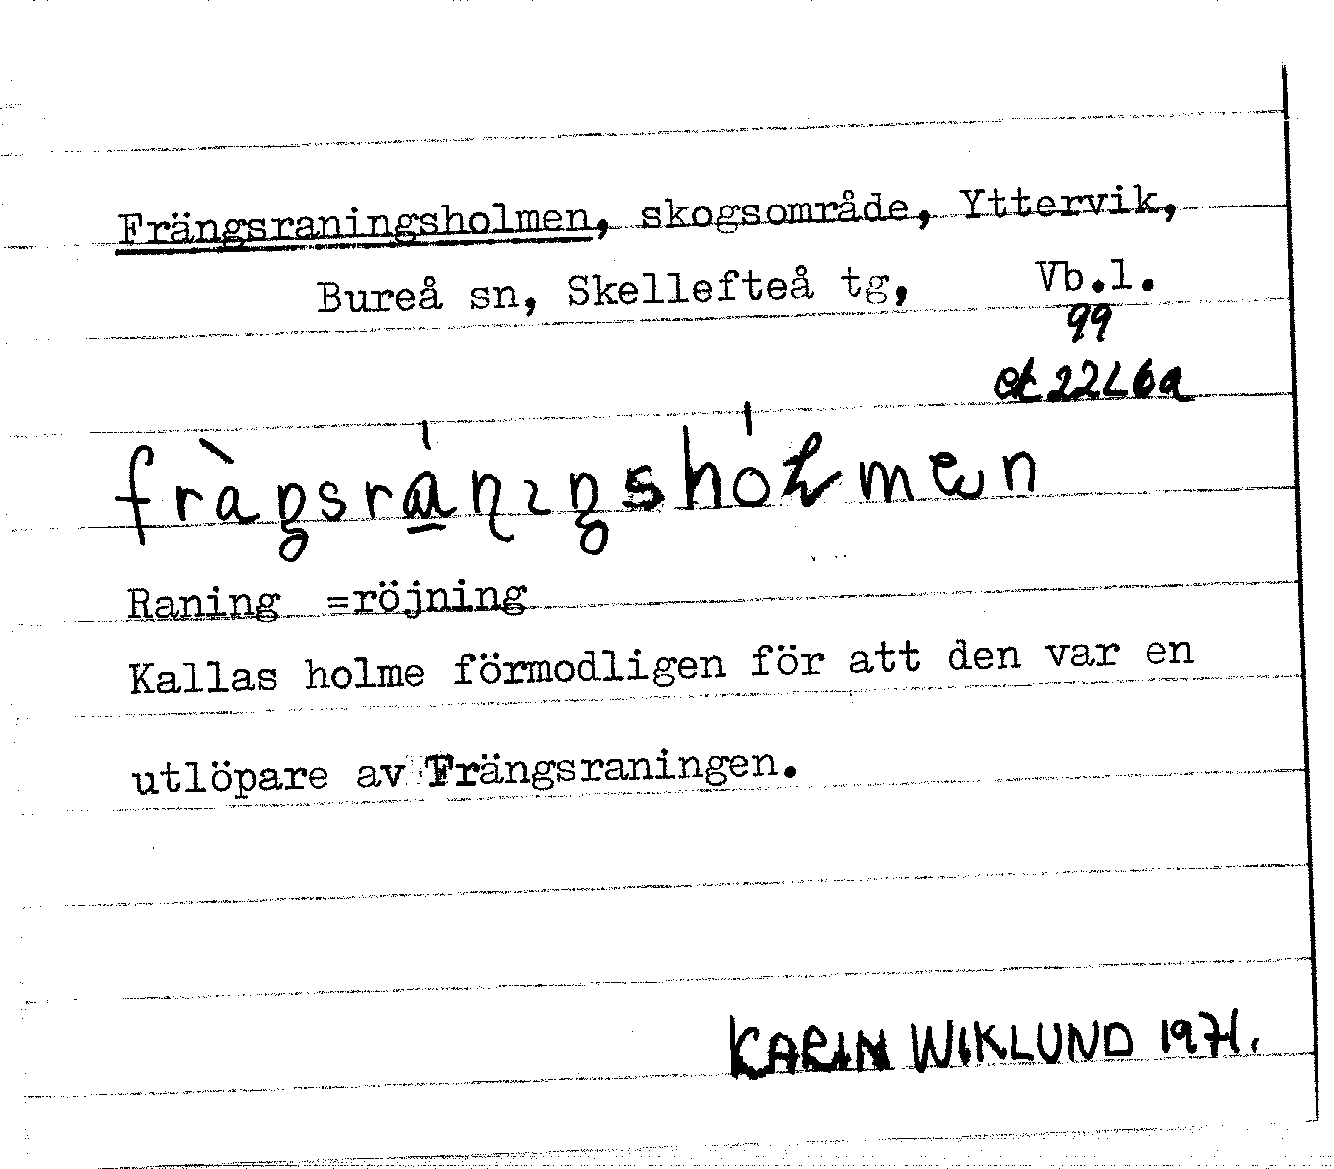 Frängsraningsholmen, skogsområde, Yttervik,
Bureå sn, Skellefteå tg, Vb.l.
99
Raning =röjning
Kallas holme förmodligen för att den var en
utlöpare av Frängsraningen.
KARIN WIKLUND 1971.